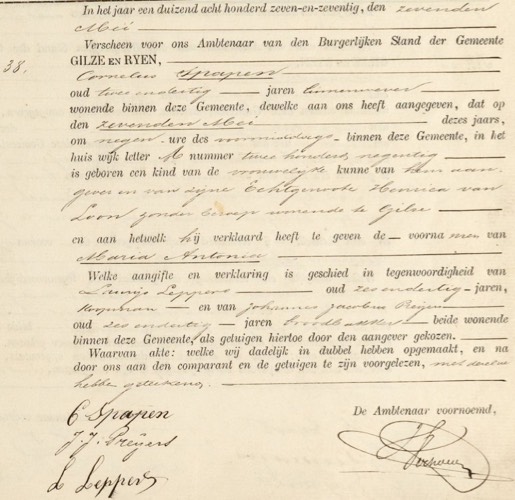 In het jaar een duizend acht honderd zeven-en-zeventig, den zevenden
Mei
Verscheen voor ons Ambtenaar van den Burgerlijken Stand der Gemeente
38.
GILZE EN RYEN,
Cornelus Spapen
oud twee endertig jaren linnenwever
wonende binnen deze Gemeente, dewelke aan ons heeft aangegeven, dat op
den zevenden Mei dezes jaars,
om negen ure des voormiddags binnen deze Gemeente, in het
huis wijk letter M nummer twee honderd negentig
is geboren een kind van de vrouwelijke kunne van hem aan-
gever en van zijne Echtgenoote Henrica van
Loon zonder beroep wonende te Gilze
en aan hetwelk hij verklaard heeft te geven de voornamen van
Maria Antonia
Welke aangifte en verklaring is geschied in tegenwoordigheid van
Laurijs Leppers oud zes endertig jaren,
Koopman en van Johannes Jacobus Reijers
oud zes endertig jaren broodbakker beide wonende
binnen deze Gemeente, als getuigen hiertoe door den aangever gekozen.
Waarvan akte: welke wij dadelijk in dubbel hebben opgemaakt, en na
door ons aan den comparant en de getuigen te zijn voorgelezen, met deze
hebbe geteekend.
C Spapen
De Ambtenaar voornoemd,
J. J. Preijers
L Leppers